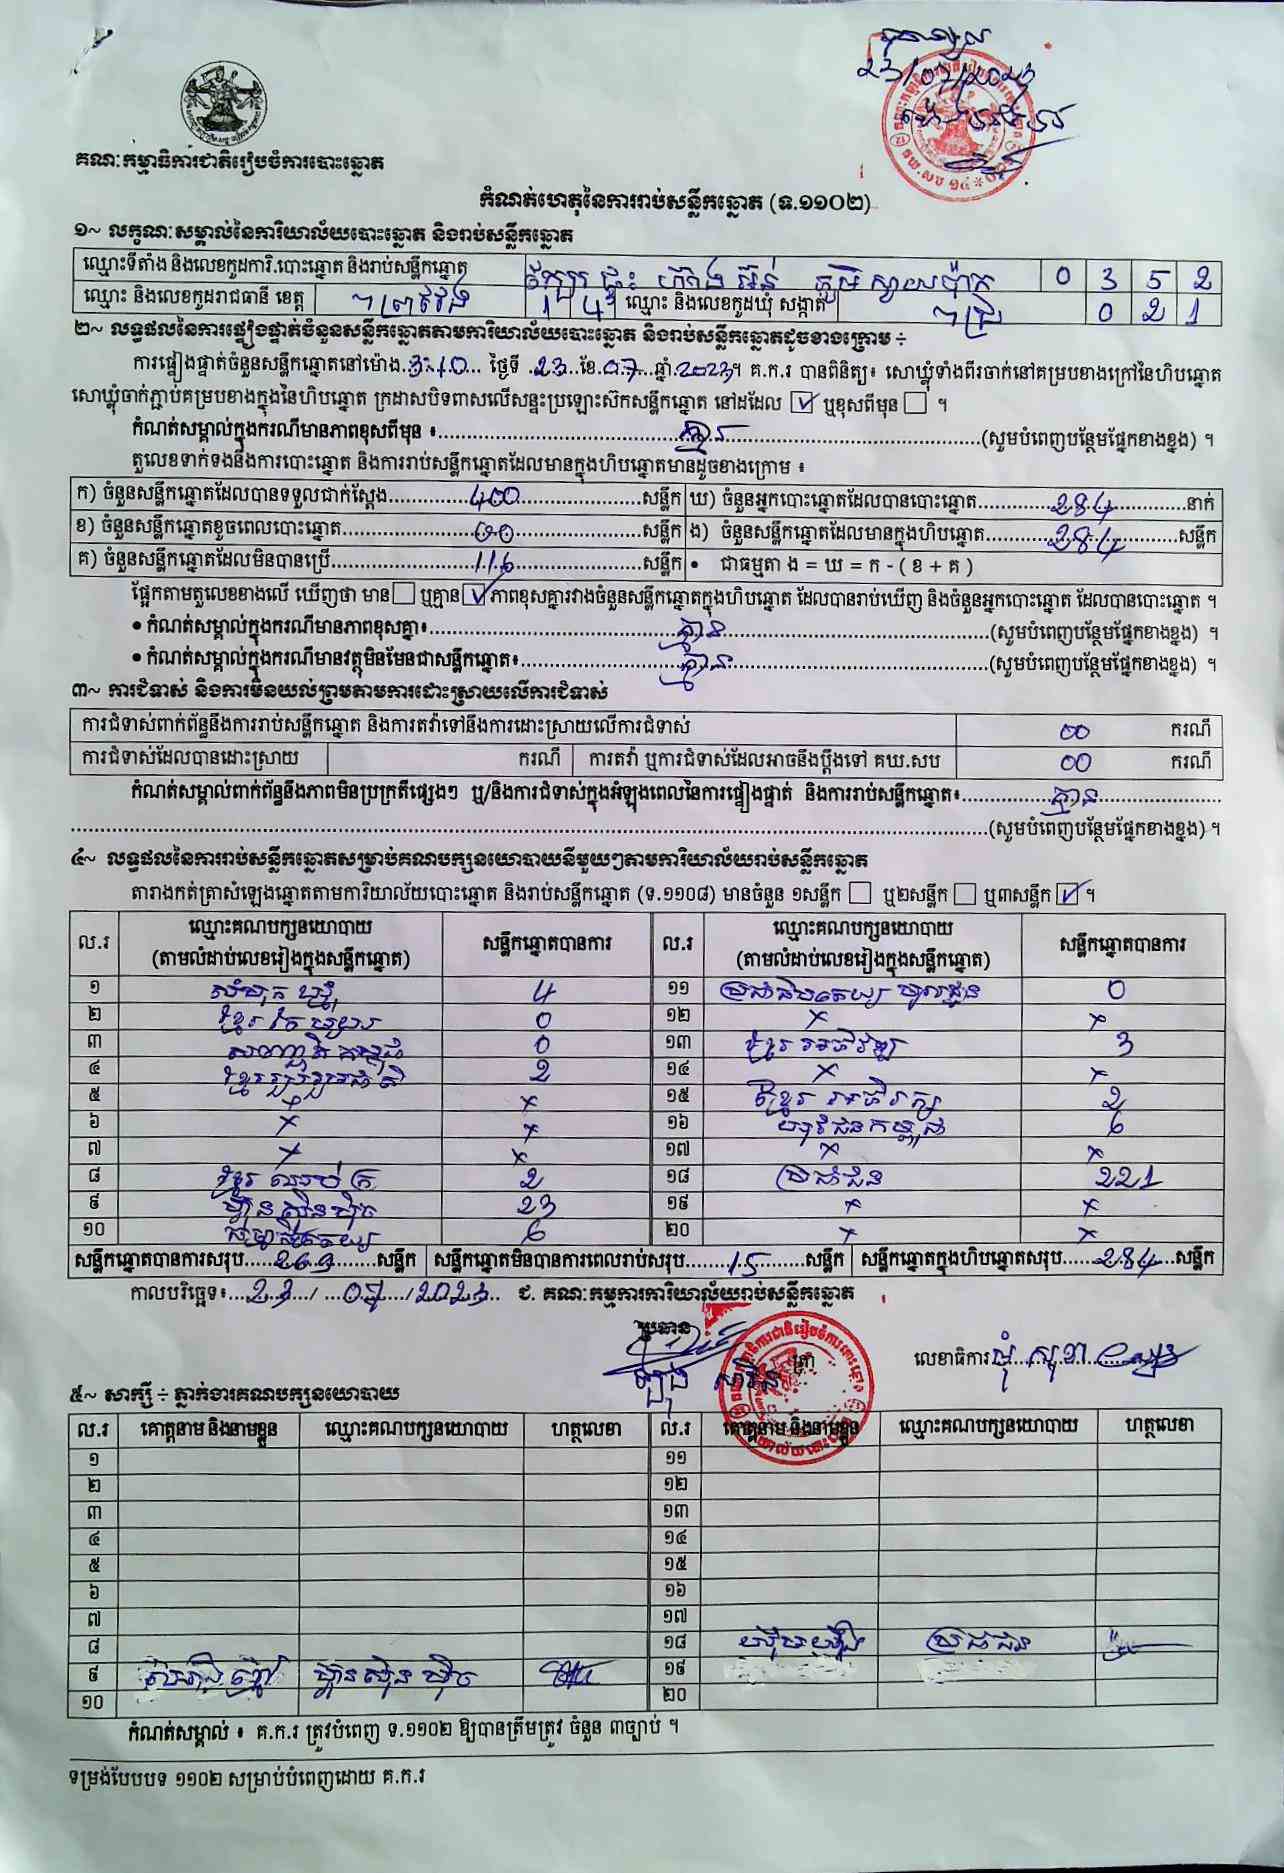 បានឃើញ
23/07/2023
គណៈកម្មាធិការជាតិរៀបចំការបោះឆ្នោត
កំណត់ហេតុនៃការរាប់សន្លឹកឆ្នោត (ទ.១១០២)
១~ លក្ខណៈសម្គាល់នៃការិយាល័យបោះឆ្នោត និងរាប់សន្លឹកឆ្នោត
ឈ្មោះទីតាំង និងលេខកូដការិ.បោះឆ្នោត និងរាប់សន្លឹកឆ្នោត ភូមិ ស្វាយប៉ាក 0 3 5 2
ឈ្មោះ និងលេខកូដរាជធានី ខេត្ត ព្រៃវែង 1 4 ឈ្មោះ និងលេខកូដឃុំ សង្កាត់ 0 2 1
២~ លទ្ធផលនៃការផ្ទៀងផ្ទាត់ចំនួនសន្លឹកឆ្នោតតាមការិយាល័យបោះឆ្នោត និងរាប់សន្លឹកឆ្នោតដូចខាងក្រោម ÷
ការផ្ទៀងផ្ទាត់ចំនួនសន្លឹកឆ្នោតនៅម៉ោង 3:10 ថ្ងៃទី 23 ខែ 07 ឆ្នាំ 2023។ គ.ក.រ បានពិនិត្យ៖ សោឃ្លុំទាំងពីរចាក់នៅគម្របខាងក្រៅនៃហិបឆ្នោត
សោឃ្លុំចាក់ភ្ជាប់គម្របខាងក្នុងនៃហិបឆ្នោត ក្រដាសបិទពាសលើសន្ទះប្រឡោះស៊កសន្លឹកឆ្នោត នៅដដែល ☑ ឬខុសពីមុន ☐ ។
កំណត់សម្គាល់ក្នុងករណីមានភាពខុសពីមុន ៖ គ្មាន (សូមបំពេញបន្ថែមផ្នែកខាងខ្នង) ។
តួលេខទាក់ទងនឹងការបោះឆ្នោត និងការរាប់សន្លឹកឆ្នោតដែលមានក្នុងហិបឆ្នោតមានដូចខាងក្រោម ៖
ក) ចំនួនសន្លឹកឆ្នោតដែលបានទទួលជាក់ស្តែង 400 សន្លឹក ឃ) ចំនួនអ្នកបោះឆ្នោតដែលបានបោះឆ្នោត 284 នាក់
ខ) ចំនួនសន្លឹកឆ្នោតខូចពេលបោះឆ្នោត 00 សន្លឹក ង) ចំនួនសន្លឹកឆ្នោតដែលមានក្នុងហិបឆ្នោត 284 សន្លឹក
គ) ចំនួនសន្លឹកឆ្នោតដែលមិនបានប្រើ 116 សន្លឹក • ជាធម្មតា ង = ឃ = ក - ( ខ + គ )
ផ្អែកតាមតួលេខខាងលើ ឃើញថា មាន ☐ ឬគ្មាន ☑ ភាពខុសគ្នារវាងចំនួនសន្លឹកឆ្នោតក្នុងហិបឆ្នោត ដែលបានរាប់ឃើញ និងចំនួនអ្នកបោះឆ្នោត ដែលបានបោះឆ្នោត ។
• កំណត់សម្គាល់ក្នុងករណីមានភាពខុសគ្នា៖ គ្មាន (សូមបំពេញបន្ថែមផ្នែកខាងខ្នង) ។
• កំណត់សម្គាល់ក្នុងករណីមានវត្ថុមិនមែនជាសន្លឹកឆ្នោត៖ គ្មាន (សូមបំពេញបន្ថែមផ្នែកខាងខ្នង) ។
៣~ ការជំទាស់ និងការមិនយល់ព្រមតាមការដោះស្រាយលើការជំទាស់
ការជំទាស់ពាក់ព័ន្ធនឹងការរាប់សន្លឹកឆ្នោត និងការតវ៉ាទៅនឹងការដោះស្រាយលើការជំទាស់ 00 ករណី
ការជំទាស់ដែលបានដោះស្រាយ ករណី ការតវ៉ា ឬការជំទាស់ដែលអាចនឹងប្តឹងទៅ គឃ.សប 00 ករណី
កំណត់សម្គាល់ពាក់ព័ន្ធនឹងភាពមិនប្រក្រតីផ្សេងៗ ឬ/និងការជំទាស់ក្នុងអំឡុងពេលនៃការផ្ទៀងផ្ទាត់ និងការរាប់សន្លឹកឆ្នោត៖ គ្មាន
(សូមបំពេញបន្ថែមផ្នែកខាងខ្នង) ។
៤~ លទ្ធផលនៃការរាប់សន្លឹកឆ្នោតសម្រាប់គណបក្សនយោបាយនីមួយៗតាមការិយាល័យរាប់សន្លឹកឆ្នោត
តារាងកត់ត្រាសំឡេងឆ្នោតតាមការិយាល័យបោះឆ្នោត និងរាប់សន្លឹកឆ្នោត (ទ.១១០៨) មានចំនួន ១សន្លឹក ☐ ឬ២សន្លឹក ☐ ឬ៣សន្លឹក ☑ ។
ល.រ ឈ្មោះគណបក្សនយោបាយ (តាមលំដាប់លេខរៀងក្នុងសន្លឹកឆ្នោត) សន្លឹកឆ្នោតបានការ ល.រ ឈ្មោះគណបក្សនយោបាយ (តាមលំដាប់លេខរៀងក្នុងសន្លឹកឆ្នោត) សន្លឹកឆ្នោតបានការ
១ សំបុកឃ្មុំ 4 ១១ ប្រជាធិបតេយ្យ មូលដ្ឋាន 0
២ ខ្មែរ 0 ១២ × ×
៣ សញ្ជាតិកម្ពុជា 0 ១៣ ខ្មែរ អភិវឌ្ឍ 3
៤ ខ្មែររួបរួមជាតិ 2 ១៤ × ×
៥ × × ១៥ ខ្មែរ អភិរក្ស 2
៦ × × ១៦ យុវជនកម្ពុជា 6
៧ × × ១៧ × ×
៨ ខ្មែរ ឈប់ក្រ 2 ១៨ ប្រជាជន 221
៩ ហ៊្វុនស៊ិនប៉ិច 23 ១៩ × ×
១០ ធម្មាធិបតេយ្យ 6 ២០ × ×
សន្លឹកឆ្នោតបានការសរុប 269 សន្លឹក សន្លឹកឆ្នោតមិនបានការពេលរាប់សរុប 15 សន្លឹក សន្លឹកឆ្នោតក្នុងហិបឆ្នោតសរុប 284 សន្លឹក
កាលបរិច្ឆេទ៖ 23 / 07 / 2023 ជ. គណៈកម្មការការិយាល័យរាប់សន្លឹកឆ្នោត
ប្រធាន
ត្រា
លេខាធិការ
៥~ សាក្សី ÷ ភ្នាក់ងារគណបក្សនយោបាយ
ល.រ គោត្តនាម និងនាមខ្លួន ឈ្មោះគណបក្សនយោបាយ ហត្ថលេខា ល.រ គោត្តនាម និងនាមខ្លួន ឈ្មោះគណបក្សនយោបាយ ហត្ថលេខា
១ ១១
២ ១២
៣ ១៣
៤ ១៤
៥ ១៥
៦ ១៦
៧ ១៧
៨ ១៨ ប្រជាជន
៩ ហ៊្វុនស៊ិនប៉ិច ១៩
១០ ២០
កំណត់សម្គាល់ ៖ គ.ក.រ ត្រូវបំពេញ ទ.១១០២ ឱ្យបានត្រឹមត្រូវ ចំនួន ៣ច្បាប់ ។
ទម្រង់បែបបទ ១១០២ សម្រាប់បំពេញដោយ គ.ក.រ